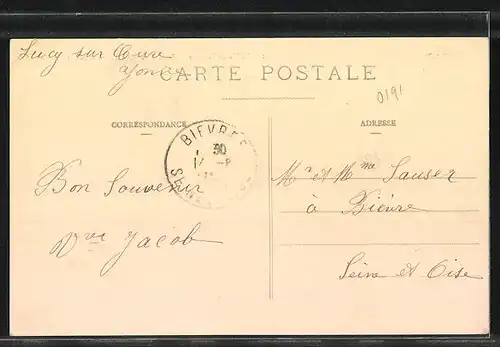 Lucy sur Cure
Yonne
CARTE POSTALE
0191
CORRESPONDANCE
ADRESSE
BIEVRES
30
SEINE
Bon Souvenir
Vve Jacob
Mr et Mme Sauser
à Bièvre
Seine et Oise